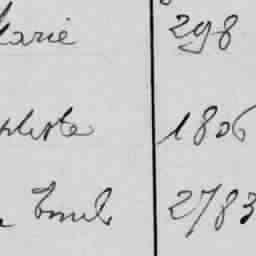 Marie 298
ptiste 1806
Emile 2783